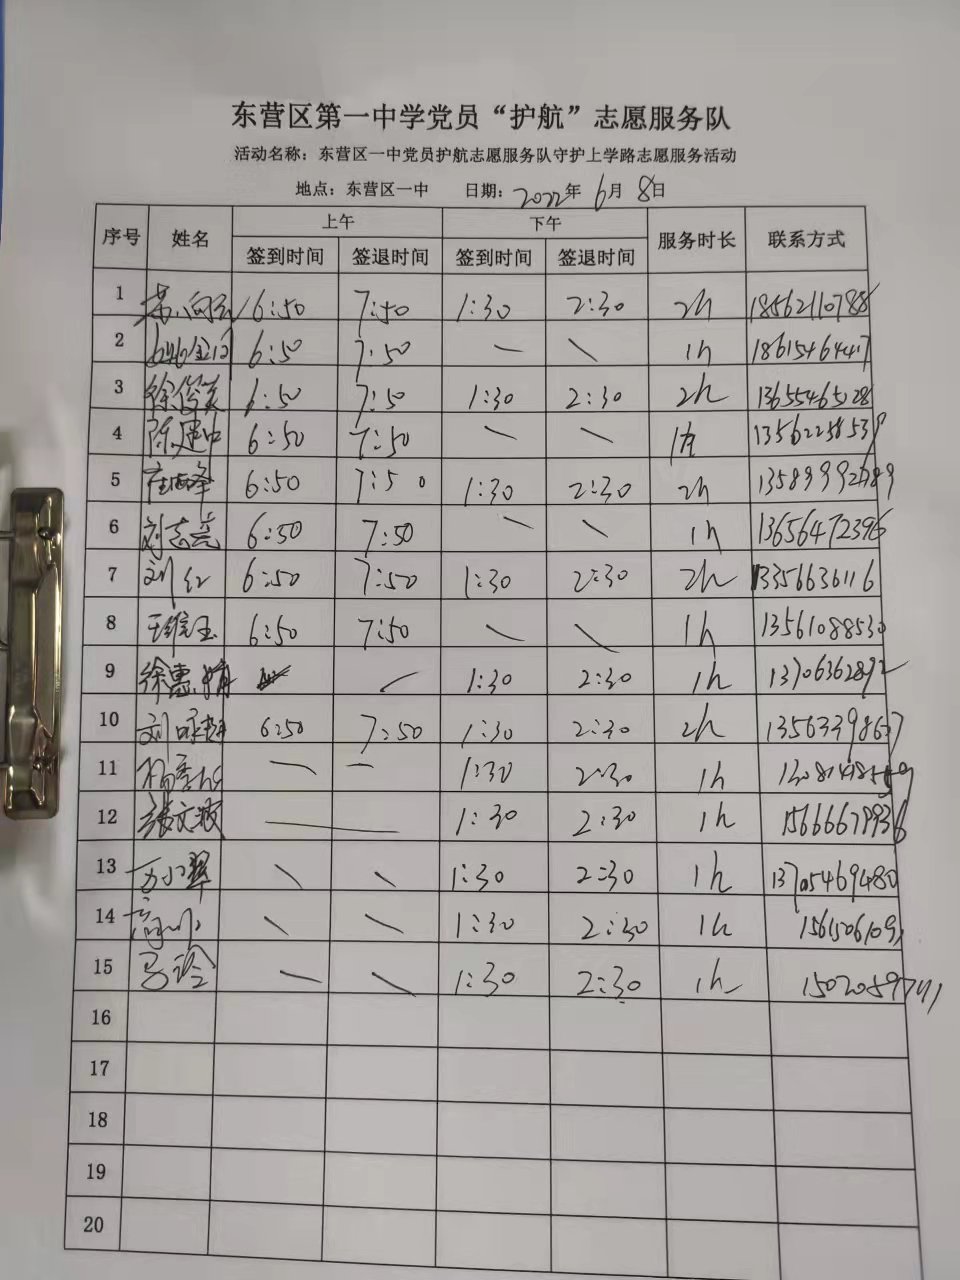 东营区第一中学党员“护航”志愿服务队
活动名称：东营区一中党员护航志愿服务队守护上学路志愿服务活动
地点：东营区一中 日期：2022年6月8日
序号 姓名 上午 下午 服务时长 联系方式
签到时间 签退时间 签到时间 签退时间
1 6:50 7:50 1:30 2:30 2h 18562110788
2 6:50 7:50 — \ 1h 18615464447
3 徐俊美 6:50 7:50 1:30 2:30 2h 13655465028
4 陈建中 6:50 7:50 \ \ 13562258539
5 6:50 7:50 1:30 2:30 2h
6 刘志亮 6:50 7:50 \ \ 1h 13656472396
7 刘红 6:50 7:50 1:30 2:30 2h 13356636116
8 6:50 7:50 \ \ 1h 13561088530
9 徐惠娟 1:30 2:30 1h 13706362892
10 6:50 7:50 1:30 2:30 2h
11 — — 1:30 2:30 1h
12 张文波 — 1:30 2:30 1h 15666679936
13 万小翠 \ \ 1:30 2:30 1h 13705469480
14 \ \ 1:30 2:30 1h
15 \ \ 1:30 2:30 1h
16
17
18
19
20